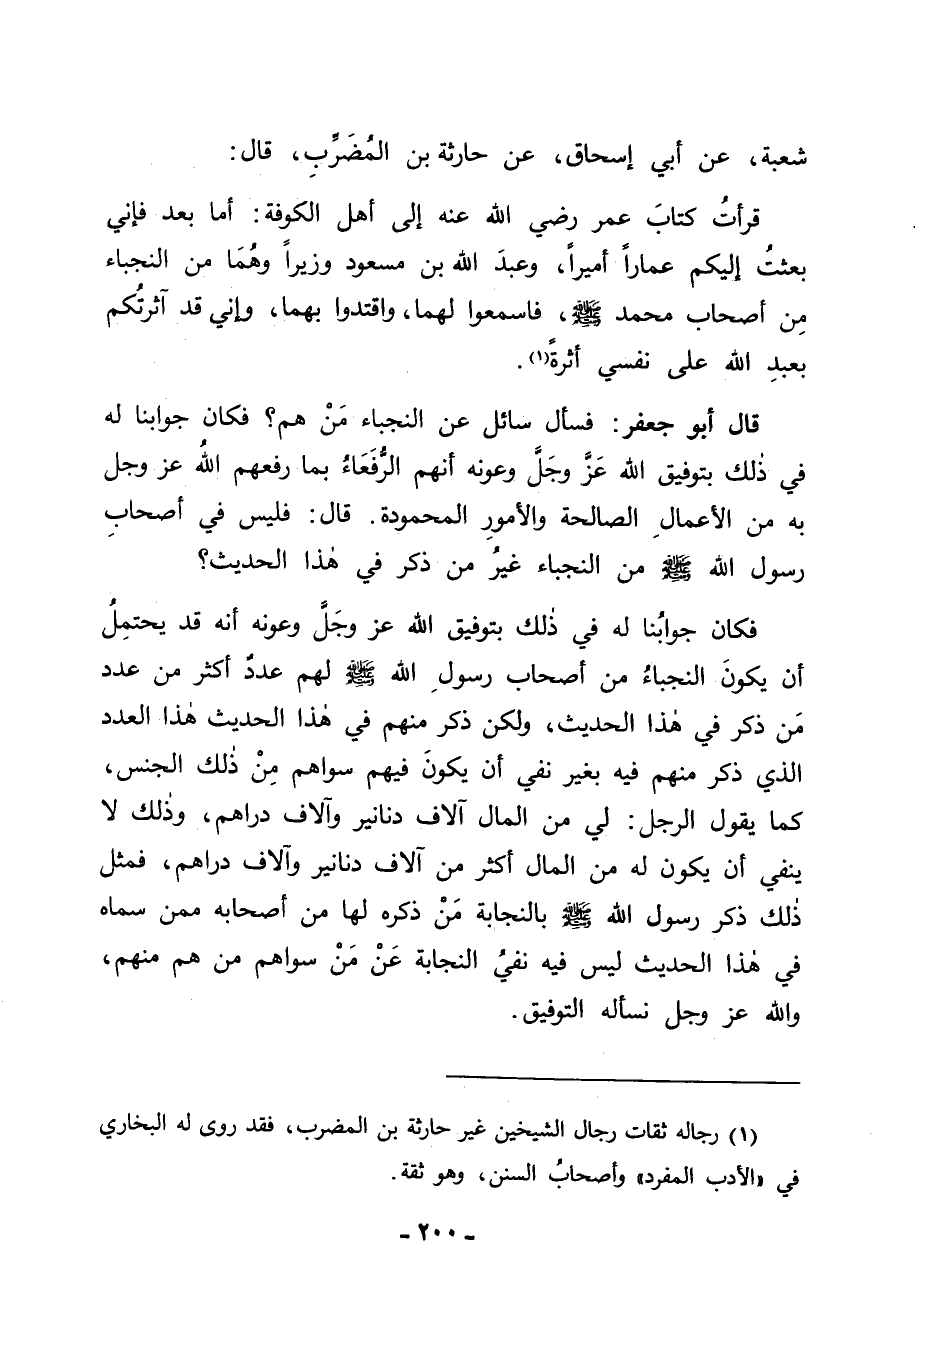 شعبة، عن أبي إسحاق، عن حارثة بن المُضَرِّبِ، قال:
قرأتُ كتابَ عمر رضي الله عنه إلى أهل الكوفة: أما بعد فإني
بعثتُ إليكم عماراً أميراً، وعبدَ الله بن مسعود وزيراً وهُمَا من النجباء
مِن أصحاب محمد ﷺ، فاسمعوا لهما، واقتدوا بهما، وإني قد آثرتُكم
بعبدِ الله على نفسي أثرةً(١).
قال أبو جعفر: فسأل سائل عن النجباء مَنْ هم؟ فكان جوابنا له
في ذٰلك بتوفيق الله عَزَّ وجَلَّ وعونه أنهم الرُّفَعَاءُ بما رفعهم اللهُ عز وجل
به من الأعمالِ الصالحة والأمورِ المحمودة. قال: فليس في أصحابِ
رسول الله ﷺ من النجباء غيرُ من ذكر في هٰذا الحديث؟
فكان جوابُنا له في ذٰلك بتوفيق الله عز وجَلَّ وعونه أنه قد يحتمِلُ
أن يكونَ النجباءُ من أصحاب رسولِ الله ﷺ لهم عددٌ أكثر من عدد
مَن ذكر في هٰذا الحديث، ولكن ذكر منهم في هٰذا الحديث هٰذا العدد
الذي ذكر منهم فيه بغير نفي أن يكونَ فيهم سواهم مِنْ ذٰلك الجنس،
كما يقول الرجل: لي من المال آلاف دنانير وآلاف دراهم، وذٰلك لا
ينفي أن يكون له من المال أكثر من آلاف دنانير وآلاف دراهم، فمثل
ذٰلك ذكر رسول الله ﷺ بالنجابة مَنْ ذكره لها من أصحابه ممن سماه
في هٰذا الحديث ليس فيه نفيُ النجابة عَنْ مَنْ سواهم من هم منهم،
والله عز وجل نسأله التوفيق.
(١) رجاله ثقات رجال الشيخين غير حارثة بن المضرب، فقد روى له البخاري
في «الأدب المفرد» وأصحابُ السنن، وهو ثقة.
- ٢٠٠ -